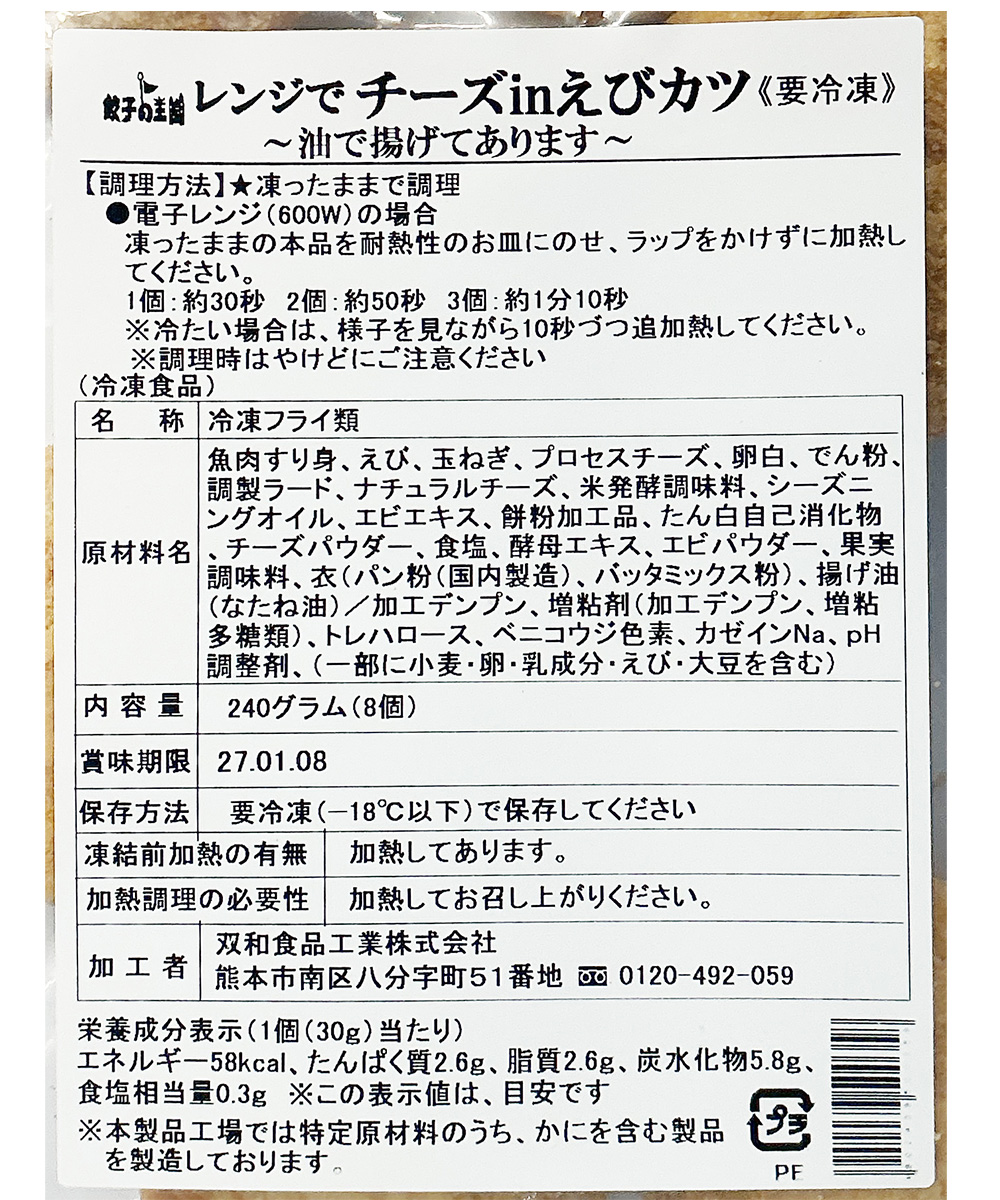 餃子の王国 レンジで チーズinえびカツ《要冷凍》
～油で揚げてあります～
【調理方法】★凍ったままで調理
●電子レンジ(600W)の場合
凍ったままの本品を耐熱性のお皿にのせ、ラップをかけずに加熱し
てください。
1個:約30秒 2個:約50秒 3個:約1分10秒
※冷たい場合は、様子を見ながら10秒づつ追加熱してください。
※調理時はやけどにご注意ください
(冷凍食品)
名 称 冷凍フライ類
原材料名 魚肉すり身、えび、玉ねぎ、プロセスチーズ、卵白、でん粉、
調製ラード、ナチュラルチーズ、米発酵調味料、シーズニ
ングオイル、エビエキス、餅粉加工品、たん白自己消化物
、チーズパウダー、食塩、酵母エキス、エビパウダー、果実
調味料、衣(パン粉(国内製造)、バッタミックス粉)、揚げ油
(なたね油)/加工デンプン、増粘剤(加工デンプン、増粘
多糖類)、トレハロース、ベニコウジ色素、カゼインNa、pH
調整剤、(一部に小麦・卵・乳成分・えび・大豆を含む)
内容量 240グラム(8個)
賞味期限 27.01.08
保存方法 要冷凍(-18℃以下)で保存してください
凍結前加熱の有無 加熱してあります。
加熱調理の必要性 加熱してお召し上がりください。
加工者 双和食品工業株式会社
熊本市南区八分字町51番地 0120-492-059
栄養成分表示(1個(30g)当たり)
エネルギー58kcal、たんぱく質2.6g、脂質2.6g、炭水化物5.8g、
食塩相当量0.3g ※この表示値は、目安です
※本製品工場では特定原材料のうち、かにを含む製品
を製造しております。
プラ
PE